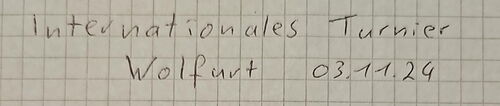 Internationales Turnier
Wolfurt 03.11.24